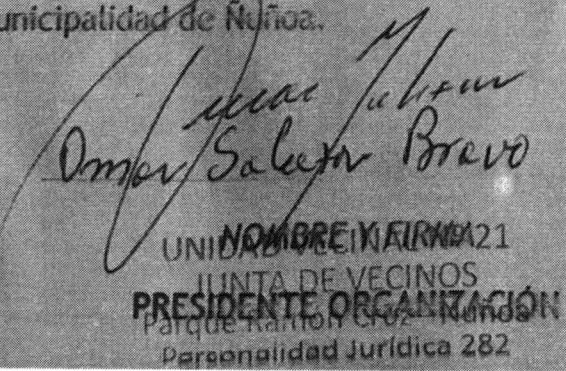 unicipalidad de Ñuñoa.
Omar Salazar Bravo
NOMBRE Y FIRMA
UNIDAD VECINAL Nº 21
JUNTA DE VECINOS
PRESIDENTE ORGANIZACIÓN
Parque Ramón Cruz - Ñuñoa
Personalidad Jurídica 282